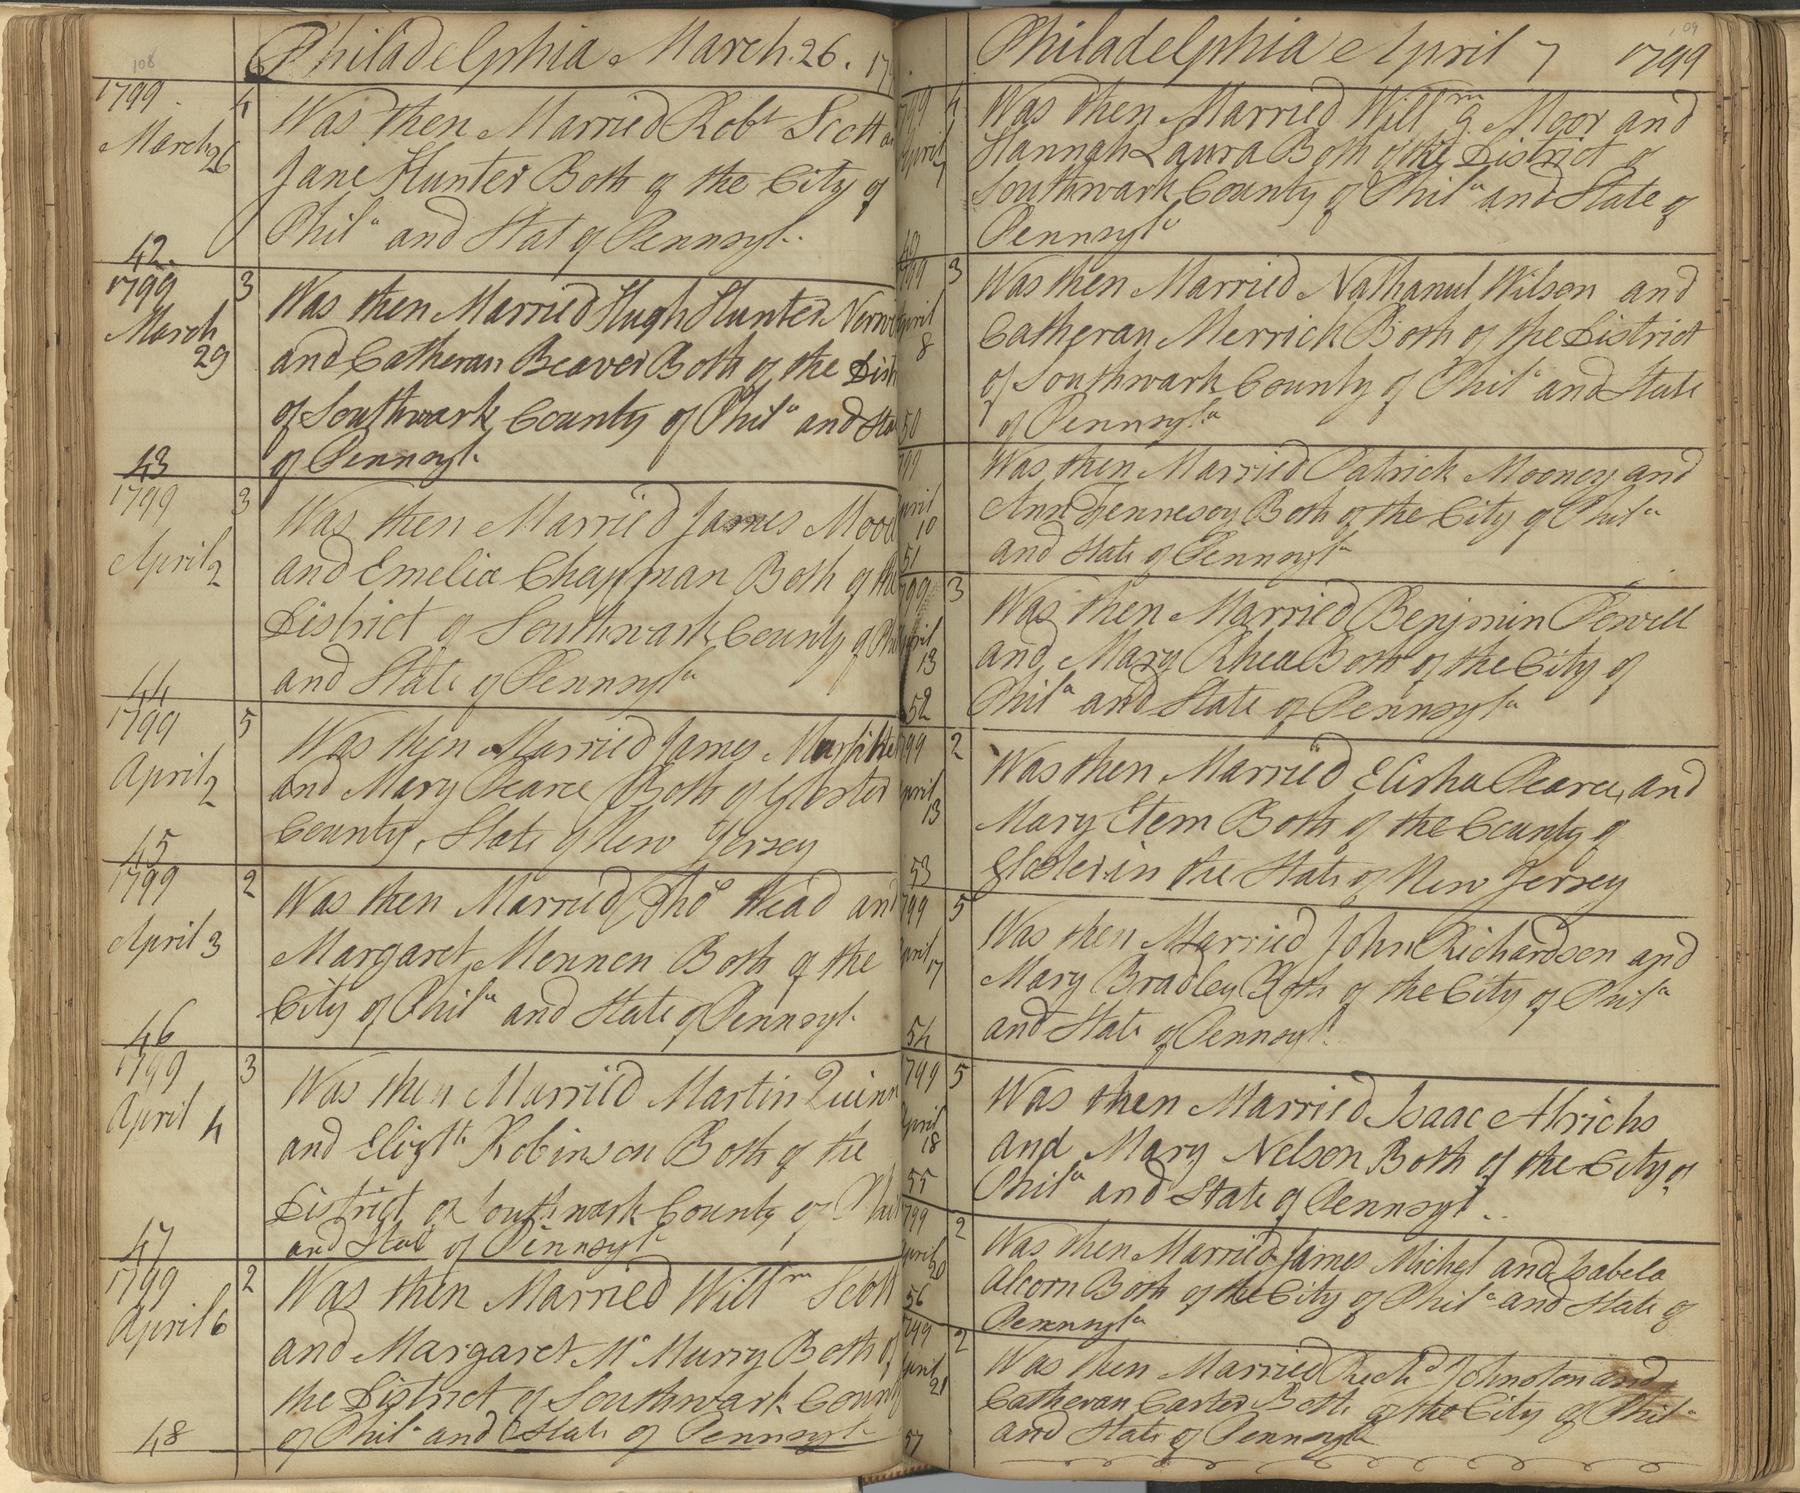 108
Philadelphia March. 26. 17
1799
March 26
4
Was then Married Robt Scott
Jane Hunter Both of the City of
Phila and Stat of Pennsyl..
42.
1799
March
29
3
Was then Married Hugh Hunter
and Catheran Beaver Both of the
of Southwark County of Phila and
of Pennsyl.
43
1799
April 2
3
Was then Married James
and Emelia Chapman Both of the
District of Southwark County of
and State of Pennsyla
44
1799
April 2
5
Was then Married James
and Mary Pearce Both of Gloster
County, State of New Jersey
45
1799
April 3
2
Was then Married Thos Head and
Margaret Mennen Both of the
City of Phila and State of Pennsyl.
46
1799
April 4
3
Was then Married Martin Quinn
and Elizth Robinson Both of the
District of Southwark County of
and Stat of Pennsyla
47
1799
April 6
2
Was then Married Willm Scott
and Margaret Mc Murry Both of
the District of Southwark County
of Phila and State of Pennsyla
48
109
Philadelphia April 7 1799
April
7
4
Was then Married Willm G. Moor and
Hannah Laura Both of the District of
Southwark County of Phila and State of
Pennsyla
49
8
3
Was then Married Nathanul Wilson and
Catheran Merrick Both of the District
of Southwark County of Phila and State
of Pennsyla
50
10
Was then Married Patrick Mooney and
Ann Hennesoy Both of the City of Phila
and State of Pennsyla
51
799
13
3
Was then Married Benjmin Powell
and Mary Rhea Both of the City of
Phila and State of Pennsyla
52
799
13
2
Was then Married Elisha Pearce, and
Mary Stem Both of the County of
Gloster in the State of New Jersey
53
799
17
5
Was then Married John Richardson and
Mary Bradley Both of the City of Phila
and State of Pennsyl.
54
799
April
18
5
Was then Married Isaac Alrichs
and Mary Nelson Both of the City of
Phila and State of Pennsyl..
55
799
20
2
Was then Married James Michel and Isabela
Alcorn Both of the City of Phila and State of
Pennsyla
56
799
21
2
Was then Married Richd Johnston and
Catheran Carter Both of the City of Phila
and State of Pennsyla
57